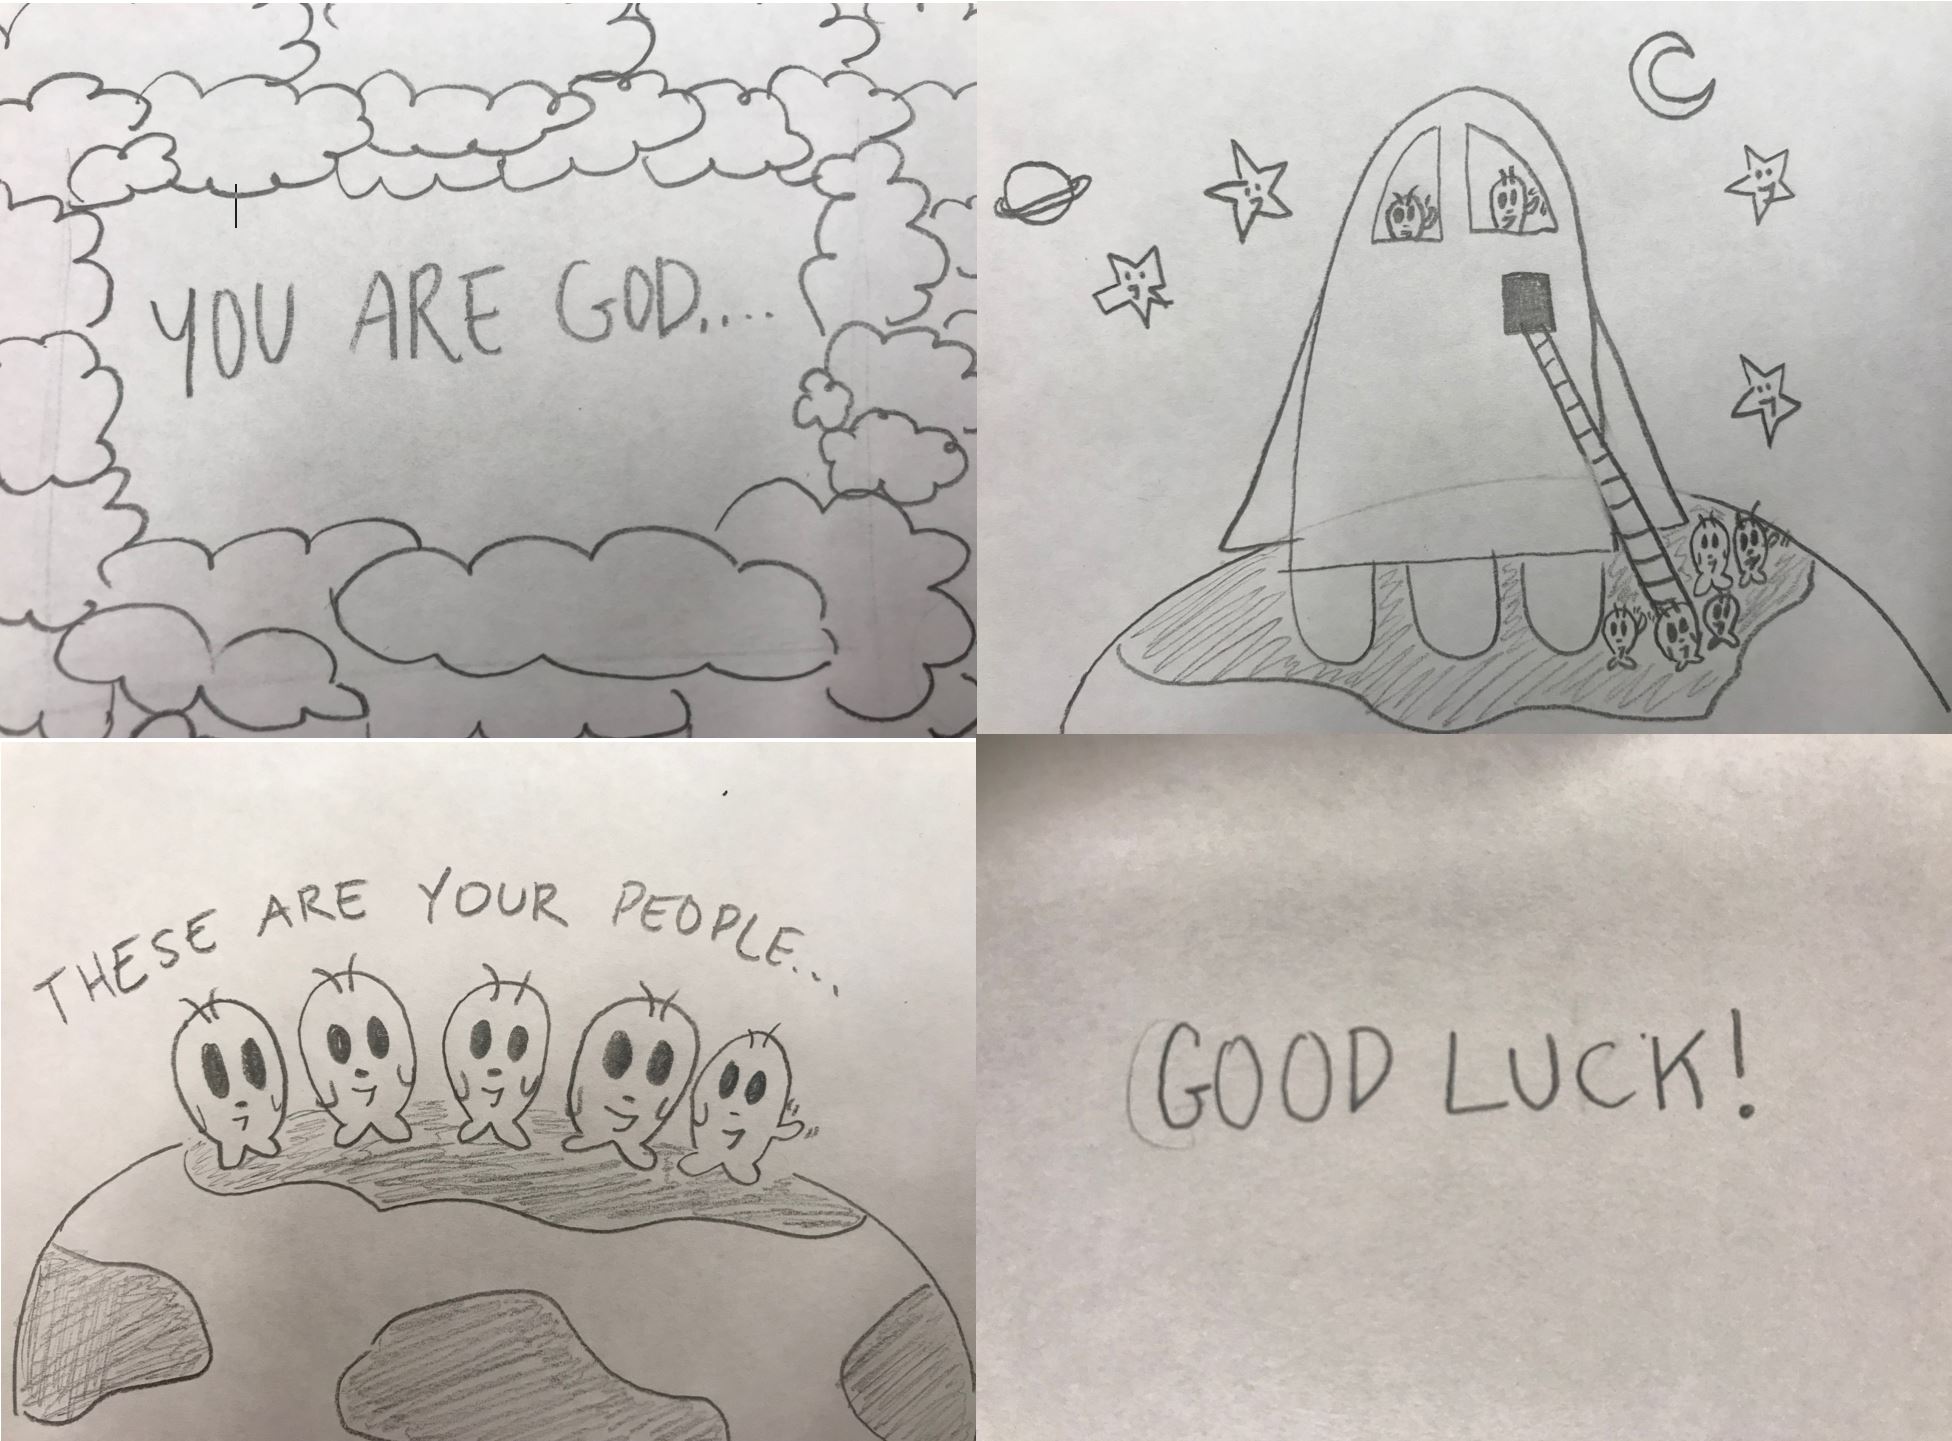 YOU ARE GOD....
THESE ARE YOUR PEOPLE...
GOOD LUCK!